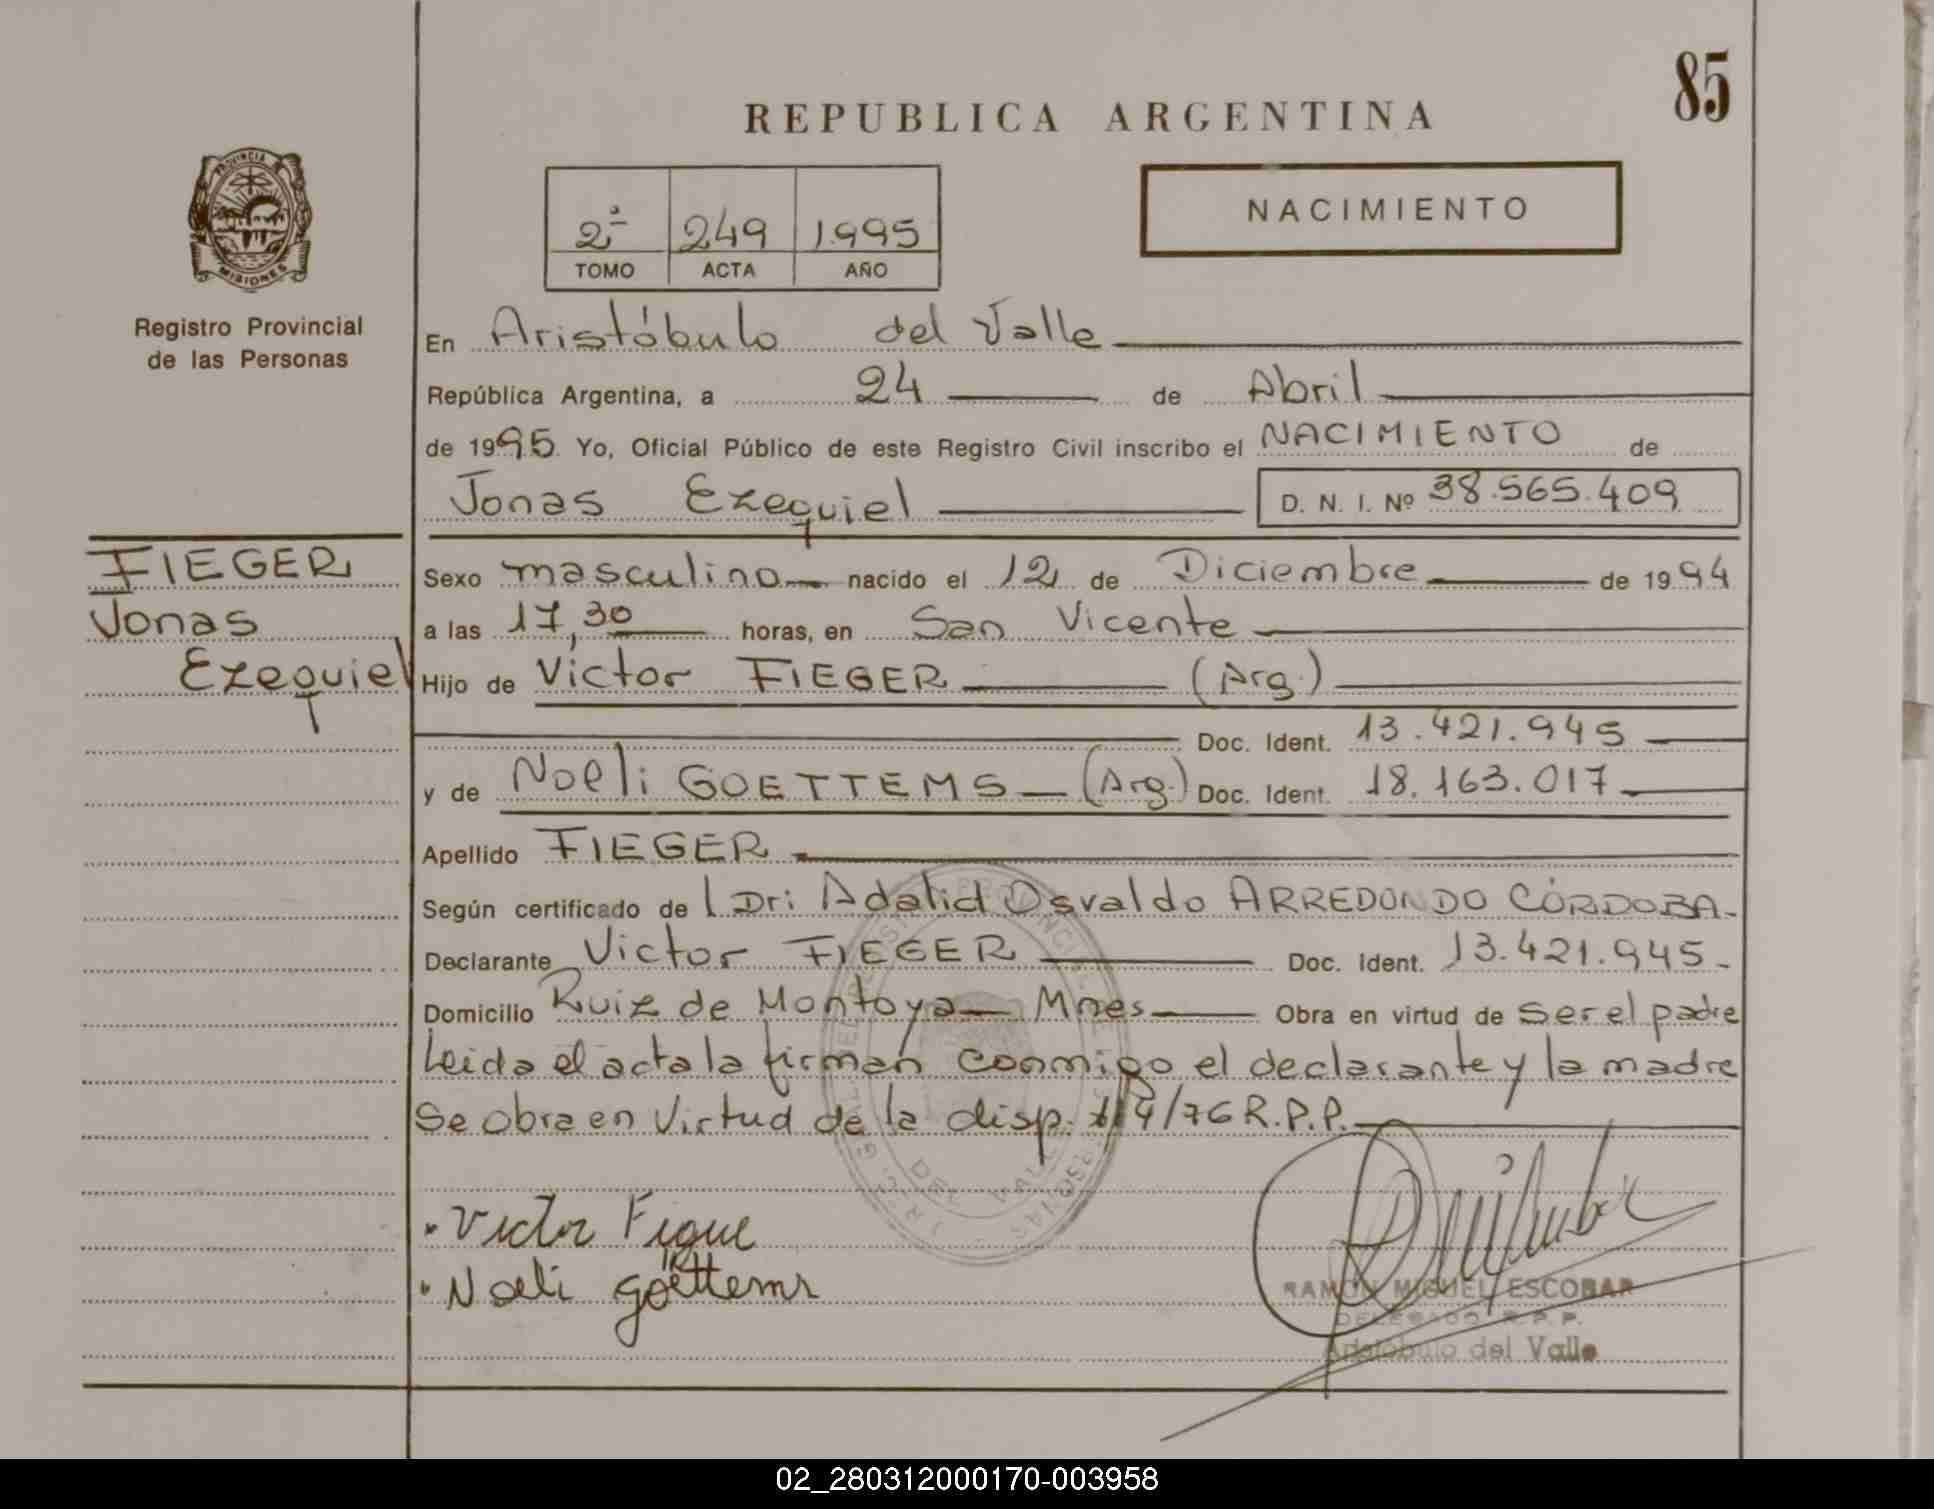 85
REPUBLICA ARGENTINA
PROVINCIA
MISIONES
Registro Provincial
de las Personas
2º 249 1995
TOMO ACTA AÑO
NACIMIENTO
En Aristóbulo del Valle
República Argentina, a 24 de Abril
de 1995. Yo, Oficial Público de este Registro Civil inscribo el NACIMIENTO de
Jonas Ezequiel D. N. I. Nº 38.565.409
FIEGER
Jonas
Ezequiel
Sexo masculino nacido el 12 de Diciembre de 1994
a las 17,30 horas, en San Vicente
Hijo de Victor FIEGER (Arg.)
Doc. Ident. 13.421.945
y de Noeli GOETTEMS (Arg.) Doc. Ident. 18.163.017
Apellido FIEGER
Según certificado de l Dr: Adalid Osvaldo ARREDONDO CÓRDOBA
Declarante Victor FIEGER Doc. Ident. 13.421.945
Domicilio Ruiz de Montoya Mnes Obra en virtud de ser el padre
Leida el acta la firman conmigo el declarante y la madre
Se obra en Virtud de la disp. /76 R.P.P.
Victor
Noeli goettems
RAMON MIGUEL ESCOBAR
DELEGADO R. P. P.
Aristóbulo del Valle
02_280312000170-003958